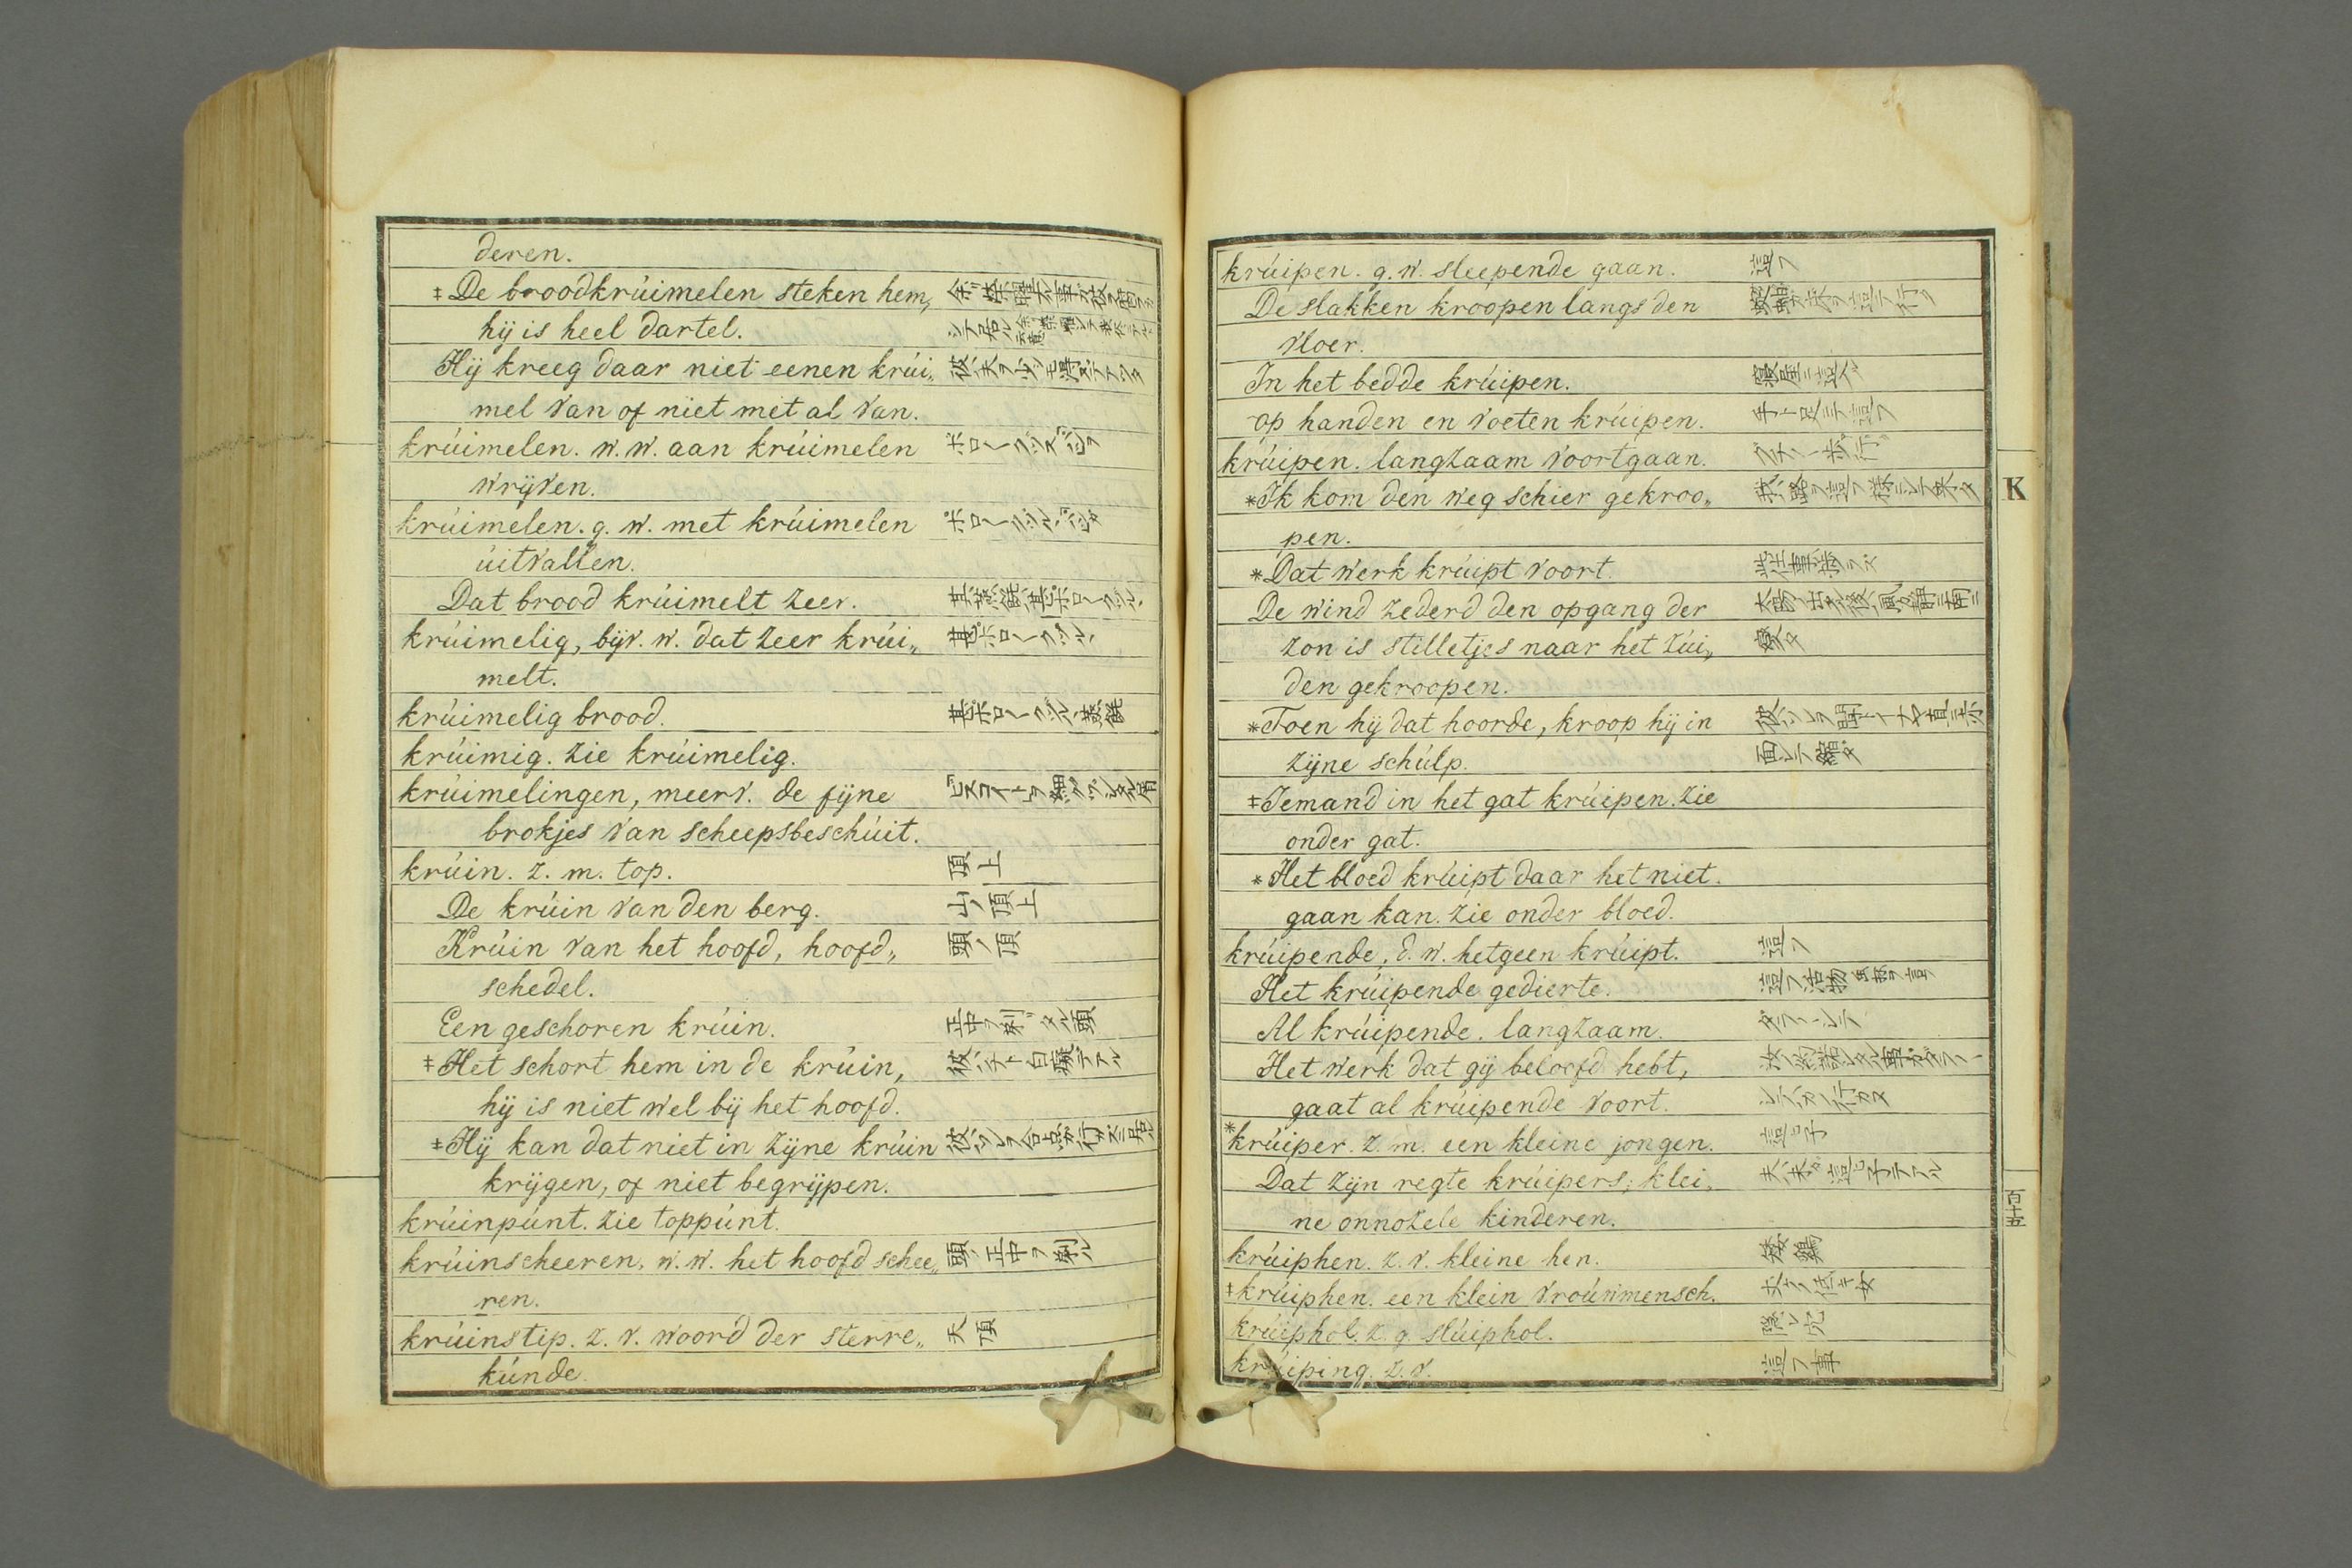 deren.
‡De broodkrúimelen steken hem,
hij is heel dartel.
Hij kreeg daar niet eenen krúi„ 彼ハ夫ヲ少シモ得ズテアツタ
mel van of niet met al van.
krúimelen. w. w. aan krúimelen
wrijven.
krúimelen. g. w. met krúimelen
úitvallen.
Dat brood krúimelt zeer.
krúimelig, bijv. w. dat zeer krúi„
melt.
krúimelig brood.
krúimig. zie krúimelig.
krúimelingen, meerv. de fijne
brokjes van scheepsbeschúit.
krúin. z. m. top. 頂上
De krúin van den berg. 山ノ頂上
Krúin van het hoofd, hoofd„ 頭ノ頂
schedel.
Een geschoren krúin. 正中ヲ剃タル頭
‡Het schort hem in de krúin, 彼ハチト白癡テアル
hij is niet wel bij het hoofd.
‡Hij kan dat niet in zijne krúin
krijgen, of niet begrijpen.
krúinpúnt. zie toppúnt.
krúinscheeren. w. w. het hoofd schee„ 頭ノ正中ヲ剃ル
ren.
krúinstip. z. v. woord der sterre„ 天頂
kúnde.
krúipen. g. w. sleepende gaan. 這フ
De slakken kroopen langs den
vloer.
In het bedde krúipen. 寝屋ニ這入ル
op handen en voeten krúipen. 手ト足ニテ這フ
krúipen. langzaam voortgaan.
*Ik kom den weg schier gekroo„ 我ハ路ヲ這フ様ニシテ来タ
pen.
*Dat werk krúipt voort.
De wind zederd den opgang der
zon is stilletjes naar het zúi„ 変タ
den gekroopen.
*Toen hij dat hoorde, kroop hij in
zijne schúlp.
‡Iemand in het gat krúipen. zie
onder gat.
*Het bloed krúipt daar het niet.
gaan kan. zie onder bloed.
krúipende, d. w. hetgeen krúipt. 這フ
Het krúipende gedierte. 這フ活物
Al krúipende. langzaam.
Het werk dat gij beloofd hebt,
gaat al krúipende voort.
*krúiper. z. m. een kleine jongen. 這子
Dat zijn regte krúipers; klei„
ne onnozele kinderen.
krúiphen. z. v. kleine hen. 矮鶏
‡krúiphen. een klein vroúwmensch. 丈ケノ低キ女
krúiphol. z. g. slúiphol. 隠レ穴
krúiping. z. v. 這フ事
K